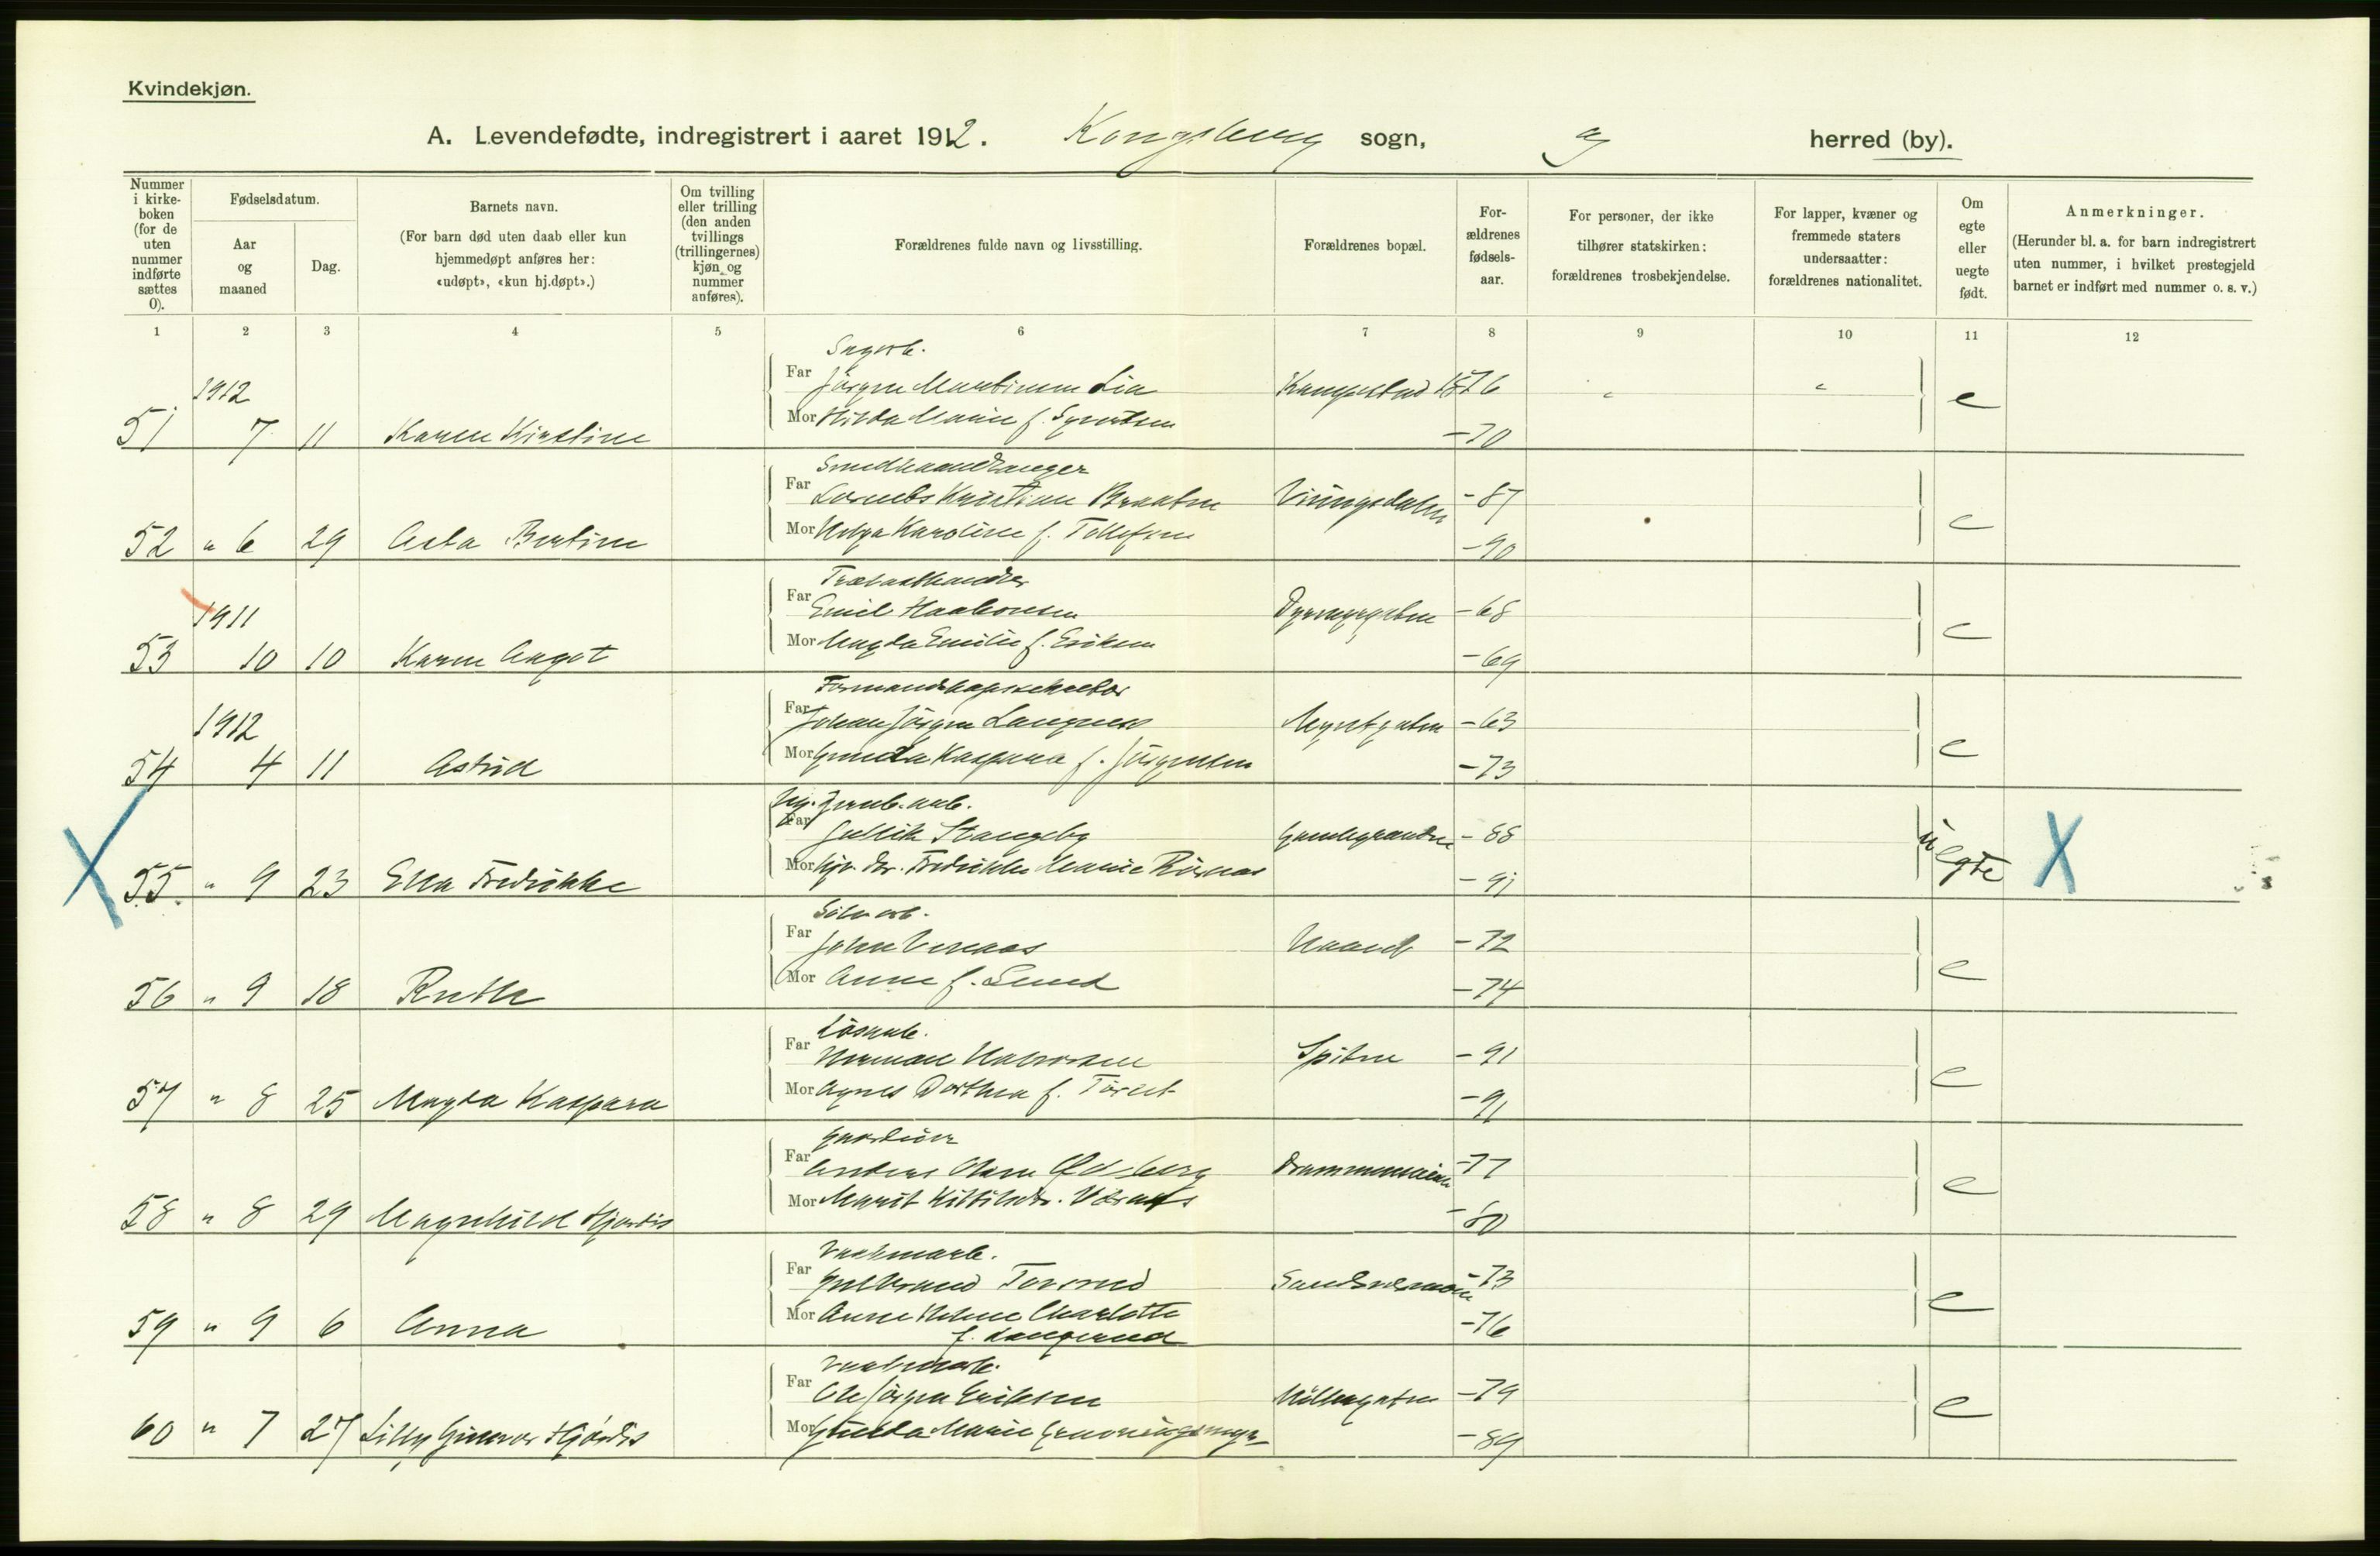 Kvindekjøn.
A. Levendefødte, indregistrert i aaret 1912. Kongsberg sogn, " herred (by).
Nummer i kirke-boken (for de uten nummer indførte sættes 0).
Fødselsdatum.
Aar og maaned
Dag.
Barnets navn.
(For barn død uten daab eller kun hjemmedøpt anføres her: «udøpt», «kun hj.døpt».)
Om tvilling eller trilling (den anden tvillings (trillingernes) kjøn og nummer anføres).
Forældrenes fulde navn og livsstilling.
Forældrenes bopæl.
For-ældrenes fødsels-aar.
For personer, der ikke tilhører statskirken: forældrenes trosbekjendelse.
For lapper, kvæner og fremmede staters undersaatter: forældrenes nationalitet.
Om egte eller uegte født.
Anmerkninger.
(Herunder bl. a. for barn indregistrert uten nummer, i hvilket prestegjeld barnet er indført med nummer o. s. v.)
1 2 3 4 5 6 7 8 9 10 11 12
Sagarb.
1912 Far Jörgen Martinsen Lia 1876 " "
51 7 11 Karen Kirstine Mor Hilda Marie f. e
-70
Smedhaandlanger
Far Kristian Braaten Viningsdalen -87
52 " 6 29 Asta Bertine Mor Helga Karoline f. Tollefsen e
-90
Trælasthandler
1911 Far Emil Haakonsen Dyrmyrgaten -68
53 10 10 Karen Aagot Mor Magda Emilie f. Eriksen e
-69
Formandskapssekretær
1912 Far Johan Jörgen Langness Myntgaten -63
54 4 11 Astrid Mor Gunda Kaspara f. Jörgensen e
-73
Ug. Jernb. arb.
Far Gullik Stangeby -88
55. " 9 23 Ella Fredrikke Mor Fredrikke Marie uegte
-91
Sölvarb.
Far John -72
56 " 9 18 Ruth Mor Anne f. Lund e
-74
Lösarb.
Far Herman Halvorsen Spiten -91
57 " 8 25 Magda Kaspara Mor Agnes Dorthea f. e
-91
Far Anders Olsen Drammensveien -77
58 " 8 29 Magnhild Hjördis Mor Marit Kittilsdtr. e
-80
Vaabenarb.
Far Gulbrand -73
59 " 9 6 Anna Mor Anne Helene Charlotte e
f. Langerud -76
Vaabenarb.
Far Ole Jörgen Eriksen Möllergaten -79
60 " 7 27 Lilly Gunvor Hjördis Mor Gunda Marie e
-89